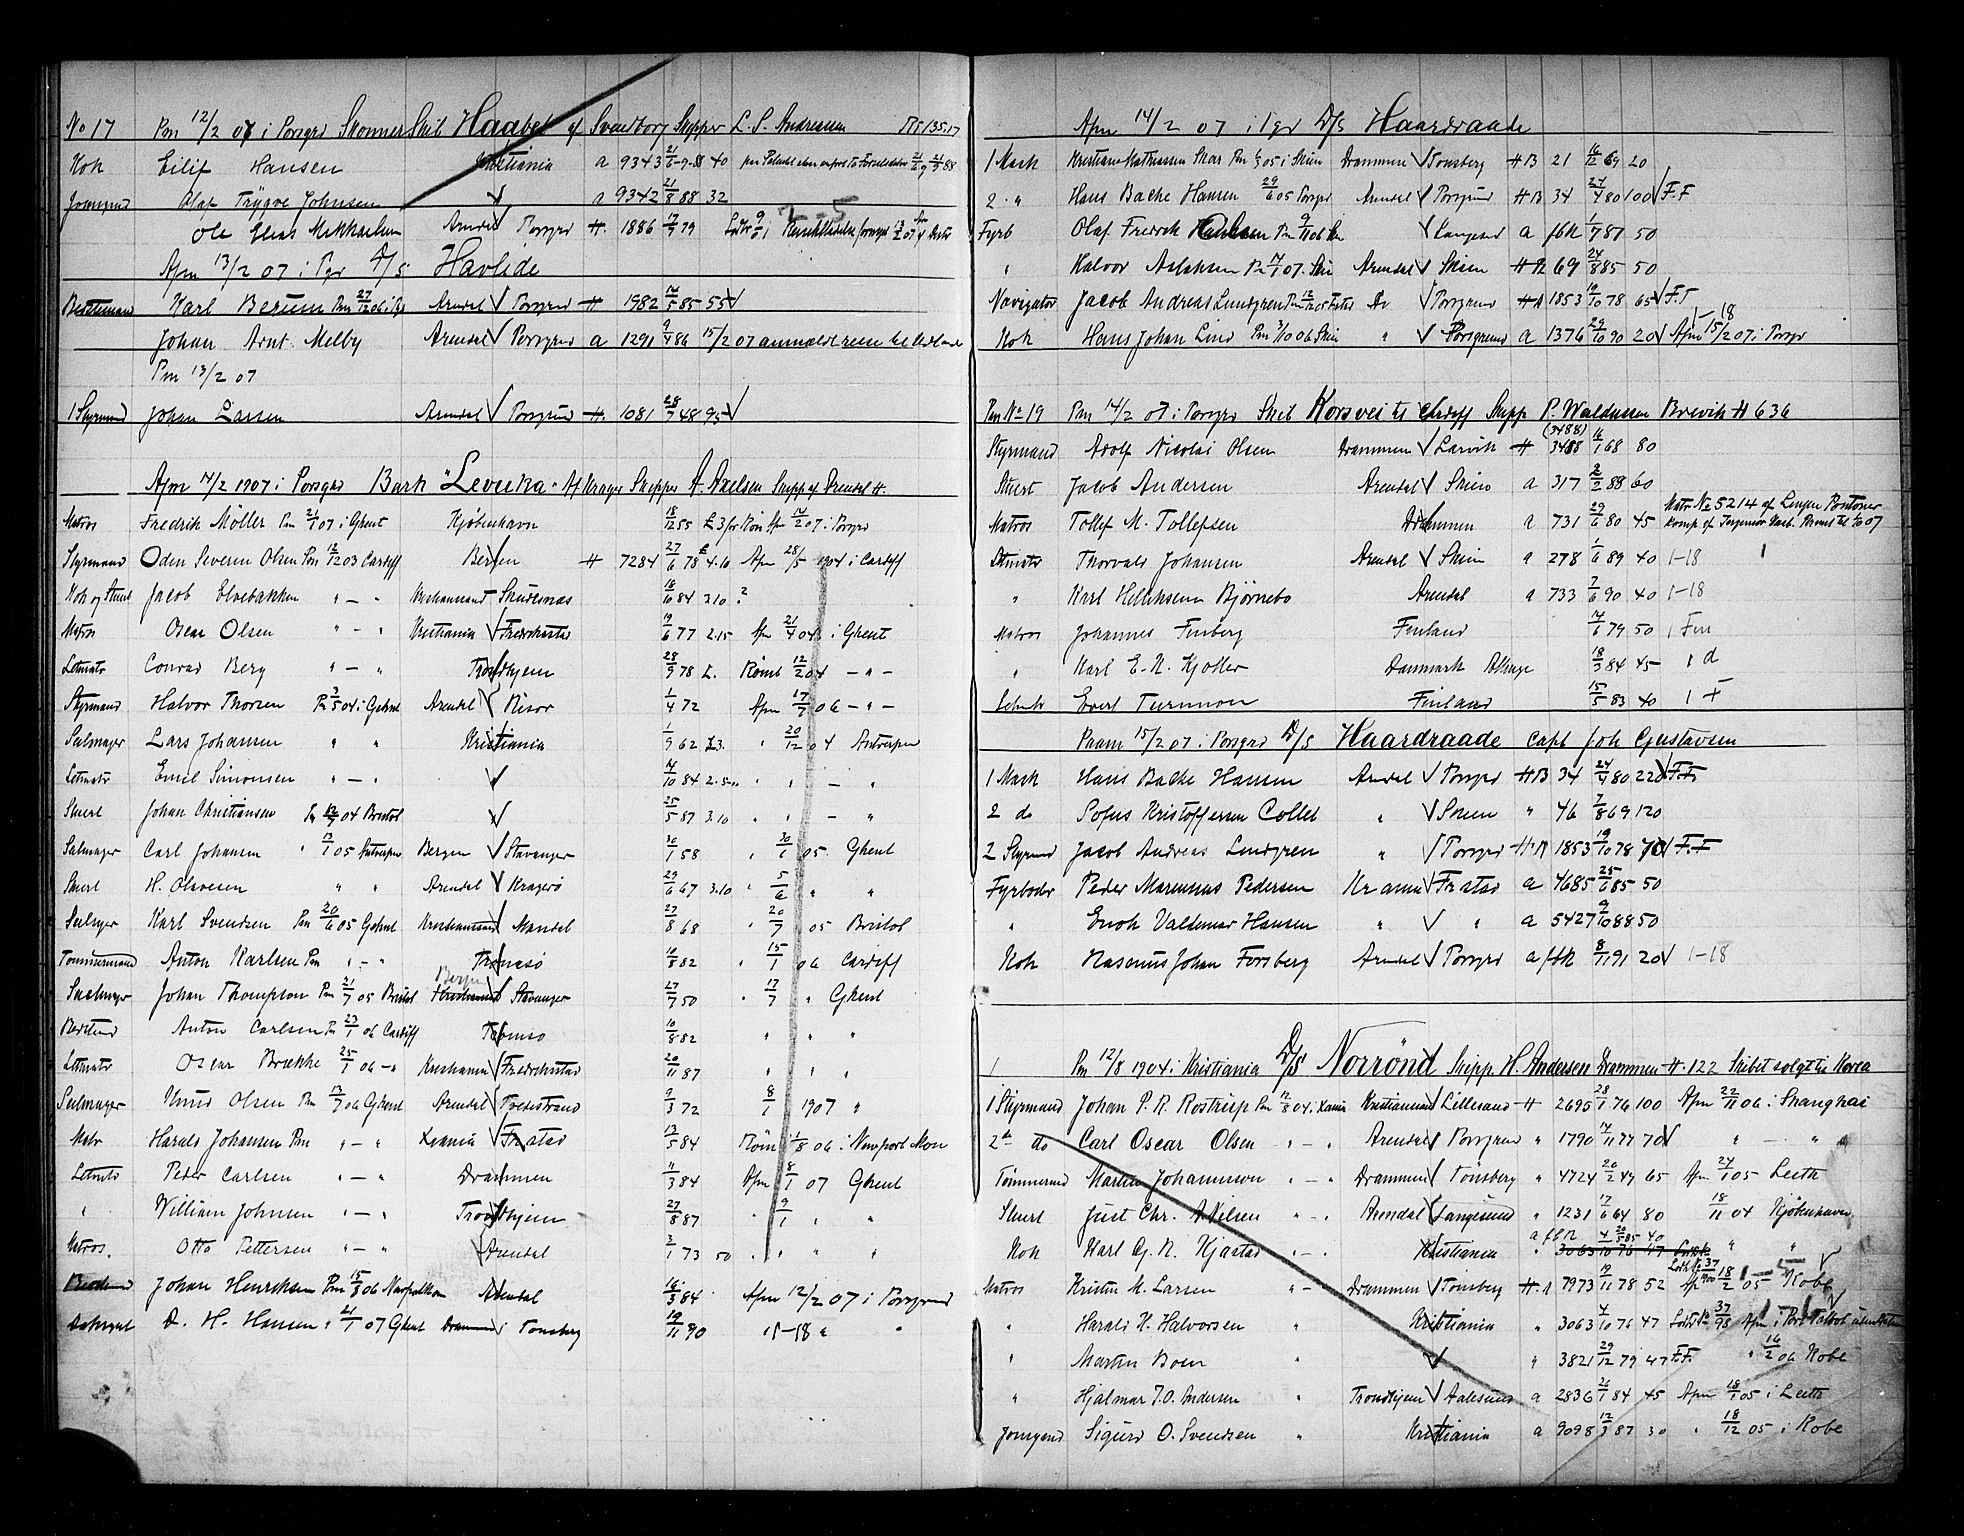 No 17 Pm 12/2 07 i Porsgrd Skonner Skib Haabet af Svendborg Skipper L. P. Andreasen
Kok Eilif Hansen Kristiania a 9343 40
Jomsgrd Olaf Trygve Johnsen a 9342 21/8 88 32
Ole Elias Mikkaelsen Arendal Porsgrd H. 1886 17/9 79
Afm 13/2 07 i Pgr D/S Havlide
Bestemand Karl Bersum Pm 27/12 06 i Pgr Arendal Porsgrd H 1982 14/5 85 55
Johan Arnt Melby Arendal Porsgrd a 1291 9/4 86 15/2 07 anmeldt reise til Udlandet
Pm 13/2 07
1 Styrmand Johan Larsen Arendal Porsgrund H. 1081 28/7 48 95
Afm 14/2 1907 i Porsgrd Bark "Levuka" Af Kragerø Skipper A. Axelsen Skipp af Arendal H.
Matros Fredrik Möller Pm 21/1 07 i Ghent Kjøbenhavn 18/12 55 £3 for Røm Afm 14/2 07 i Porsgrd
Styrmand Oden Severin Olsen Pm 12/12 03 Cardiff Bergen H 7284 27/6 78 £4.10 Afm 28/5 1904 i Cardiff
Kok og Stuert Jacob Elvebakken " — " Kristiansand Skudesnæs 18/10 84 3.10 ?
Matros Oscar Olsen " — " Kristiania Fredrikstad 19/6 77 2.15 Afm 21/4 04 i Ghent
Letmatr Conrad Berg " — " Trondhjem 28/9 78 £. Rømt 12/2 04 — " —
Styrmand Halvor Thorsen Pm 3/5 04 i Ghent Arendal Risør 1/4 72 Afm 17/7 06 — " —
Seilmager Lars Johansen " " Kristiania 1/9 62 £3. " 20/12 04 Antwerpen
Letmatr Emil Simonsen " — " 14/10 84 2.5 " " — "
Stuert Johan Christiansen Pm 12/7 04 Bristol 25/5 87 3.10 " " — "
Seilmager Carl Johansen " 13/1 05 Antwerpen Bergen Stavanger 30/1 58 " 30/6 05 Ghent
Stuert H. Olavesen " " Arendal Kragerø 29/6 67 3.10 " 5/6 " "
Seilmager Karl Svendsen Pm 20/6 05 Ghent Kristiansand Mandal 27/8 68 " 20/7 05 Bristol
Tømmermand Anton Karlsen Pm " — " Tromsø 10/8 82 " 15/1 06 Cardiff
Seilmager Johan Thompson Pm 21/7 05 Bristol Bergen Stavanger 27/7 50 " 17/7 " Ghent
Bestmd Anton Carlsen Pm 23/1 06 Cardiff Tromsø 10/8 82 " " "
Letmatr Oscar Brække 25/1 06 — " Kristiania Fredrikstad 20/11 87 " " "
Seilmager Knud Olsen Pm 13/7 06 Ghent Arendal Tvedestrand 9/3 72 8/1 1907 "
Matr Harald Johansen Pm " — " Xiania Frstad 13/5 84 Røm 1/8 06 i Newport Mon
Letmatr Peter Carlsen " — " Drammen 11/3 84 Afm 8/1 07 Ghent
" William Johnsen " — " Trondhjem 27/8 87 " 9/1 " "
Matros. Otto Pettersen " — " Arendal 2/1 73 50 " " " "
Bestmd Johan Henriksen Pm 15/8 06 Newport Mon Arendal 16/3 84 Afm 12/2 07 i Porsgrund
Dæksgut D. H. Hansen " 21/1 07 Ghent Drammen Tonsberg 19/11 90 15-18 " "
Afm 14/2 07 i Pgr D/S Haardraade
1 Mask Kristian Mathiassen Skar Pm 05 i Skien Drammen Tonsberg H B 21 16/12 69 20
2 " Hans Backe Hansen 29/6 05 Porsgrd Arendal Porsgrund H B 34 24/4 80 100 F.F
Fyrb Olaf Fredrik Karlsen Pm 9/11 06 Langesund a fbk 1/7 87 50
" Halvor Aslaksen Pm 14/1 07 Skien Arendal Skien H R 69 24/8 85 50
Navigatør Jacob Andreas Lundgren Pm Ar Porsgrund H A 1853 19/10 78 65 F.F
Kok Hans Johan Lind Pm 3/10 06 Skien " Porsgrund a 1376 29/10 90 20 Afm 15/2 07 i Porsgr 1-18
Pm No 19 Pm 14/2 07 i Porsgrd Skib Korsvei til Cardiff Skipp P. Waldussen Brevik H 636
Styrmand Adolf Nicolai Olsen Drammen Larvik H (3488) 3488 16/1 68 80
Stuert Jacob Andersen Arendal Skien a 317 2/2 88 60
Matros Tollef M. Tollefsen Drammen a 731 29/6 80 45 Matr No 5214
Letmatr Thorvald Johansen Arendal Skien a 278 1/6 89 40 1-18
" Karl Helliksen Bjørnebo Arendal a 733 7/6 90 40 1-18
Matros Johannes Finberg Finland 14/6 79 50 1 Fin
" Karl E. N. Kjoller Danmark 18/3 84 45 1 d
Letmtr Evert Turunnon Finland 15/5 83 40 1 F
Paam 15/2 07 i Porsgrd D/S Haardraade Capt Joh Gustavsen
1 Mask Hans Backe Hansen Arendal Porsgrd H B 34 24/4 80 220 F.F.
2 do Sofus Kristoffersen Collet " Skien " 46 7/8 69 120
2 Styrmd Jacob Andreas Lundgren " Porsgrd H.A 1853 19/10 78 70 F.F
Fyrbøder Peder Marinius Pedersen Kr ania Frstad a 4685 25/6 85 50
" Enok Valdemar Hansen " " a 5427 9/10 88 50
Kok Rasmus Johan Forsberg Arendal Porsgrd a fbk 8/11 91 20 1-18
1 Pm 12/8 1904 i Kristiania D/S Norrönd Skipp H. Andersen Drammen H. 122 Skibet solgt til Korea
1 Styrmand Johan P. R. Rostrup Pm 12/8 04 i Xania Kristiansand Lillesand H 2695 28/1 76 100 Afm 22/11 06 i Shanghai
2 do Carl Oscar Olsen " — " Arendal Porsgrund " 1790 14/11 77 70 " — " "
Tömmermd Martin Johannesen " — " Drammen Tønsberg " 4724 20/2 49 65 Afm 24/1 05 Leith
Stuert Just Chr. A. Nilsen " — " Arendal Langesund " 1231 17/6 64 80 18/11 04 Kjöbenhavn
Kok Karl Og. N. Kjastad " — " Kristiania a fbk 4 20/5 85 40 3063 10 76 47 " "
Matros Kristen M. Larsen " — Drammen Tonsberg H. a 7973 19/11 78 52 Afm 18/2 05 Kobe
" Harald N. Halvorsen " Kristiania " 3063 4/10 76 47 Afm i Port Talbot
" Martin Boen " " 3821 29/12 79 47 F.F. " 16/2 06 Kobe
" Hjalmar J. O. Andersen " Trondhjem Aalesund a 2836 21/1 84 45 Afm 18/1 05 i Leith
Jomgend Sigurd O. Svendsen " Kristiania a 9098 12/3 87 30 " 18/12 05 i Kobe